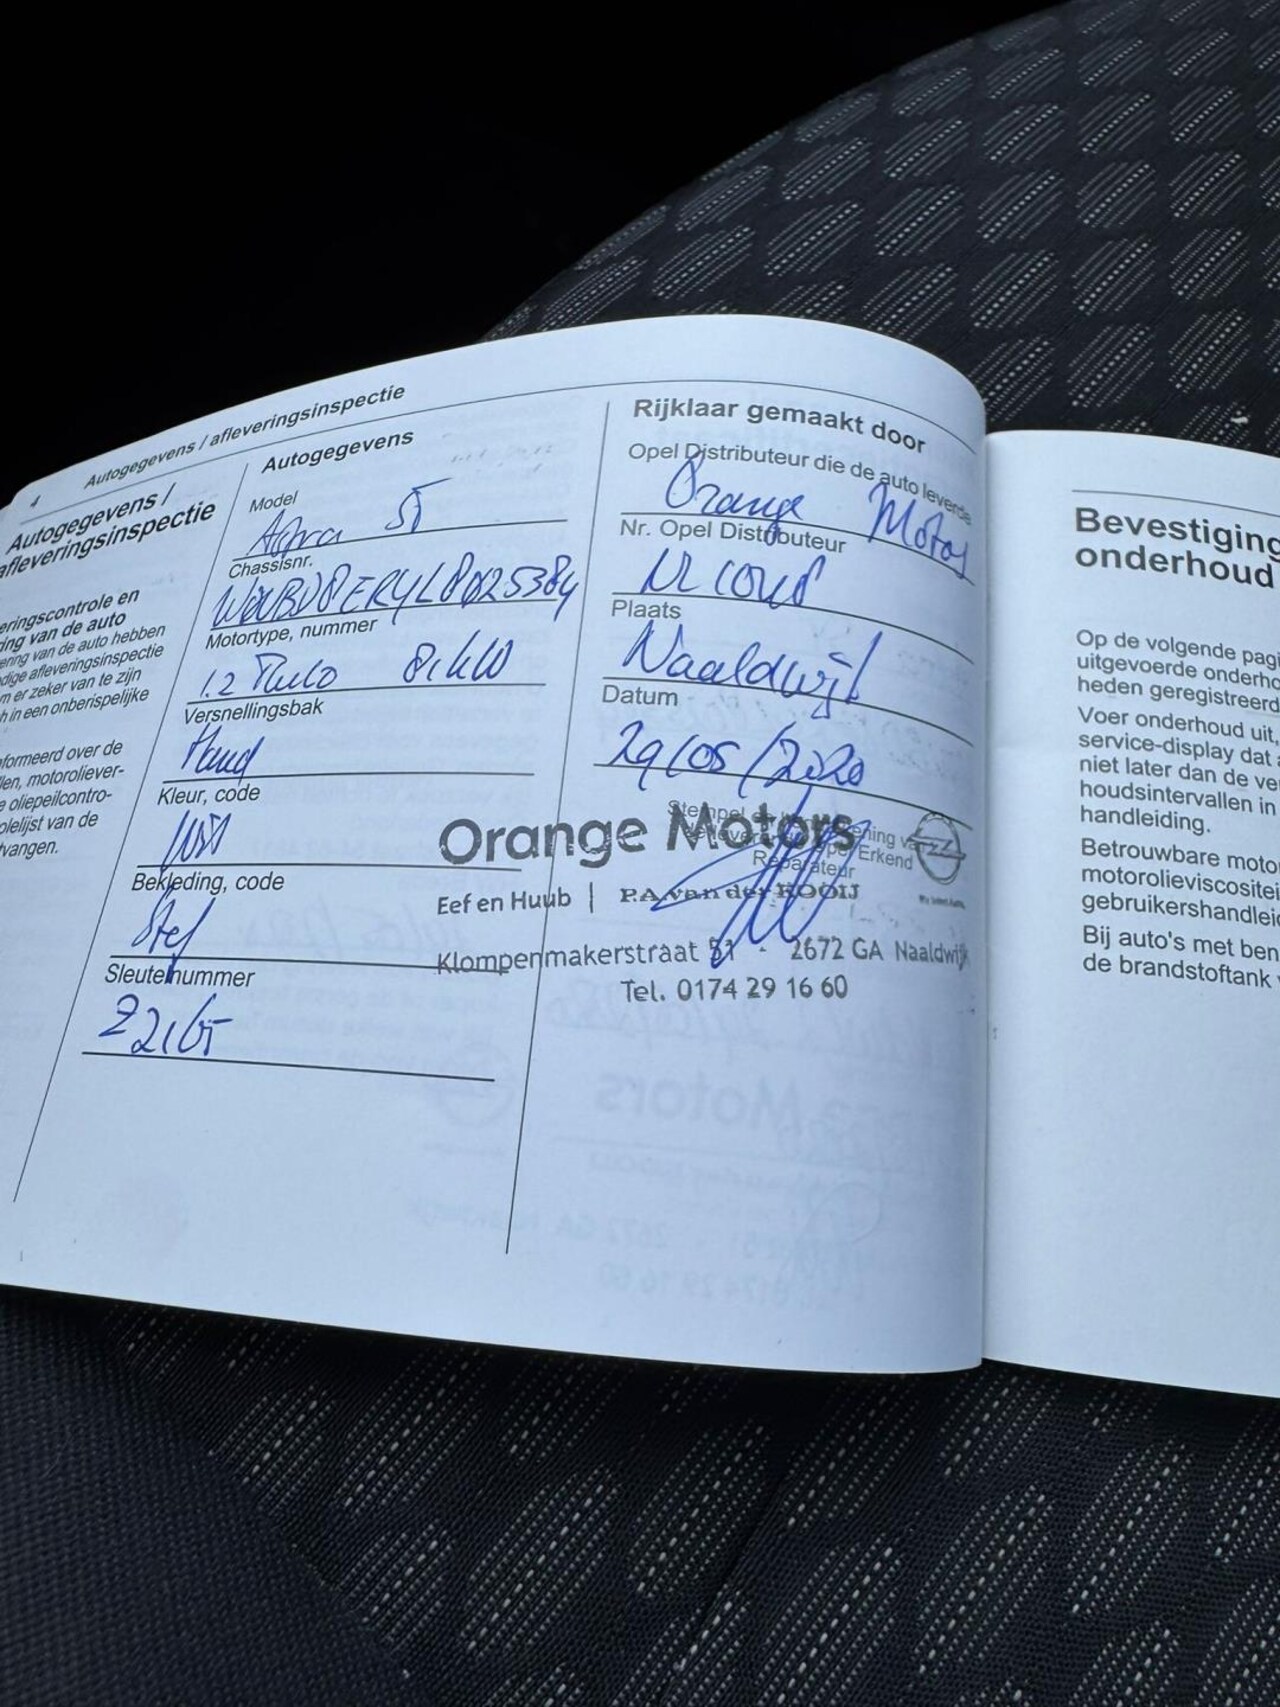 4 Autogegevens / afleveringsinspectie
Autogegevens /
afleveringsinspectie
eringscontrole en
ring van de auto
ering van de auto hebben
dige afleveringsinspectie
m er zeker van te zijn
h in een onberispelijke
formeerd over de
len, motoroliever-
e oliepeilcontro-
olelijst van de
tvangen.
Autogegevens
Model
Astra 5T
Chassisnr.
Motortype, nummer
1.2 Turbo 81kW
Versnellingsbak
Hand
Kleur, code
Wit
Bekleding, code
Stof
Sleutelnummer
Rijklaar gemaakt door
Opel Distributeur die de auto leverde
Orange Motors
Nr. Opel Distributeur
Plaats
Naaldwijk
Datum
29/05/2020
Erkend
Reparateur
Orange Motors
Eef en Huub | P.A. van der KOOIJ
Klompenmakerstraat 51 - 2672 GA Naaldwijk
Tel. 0174 29 16 60
Bevestiging
onderhoud
Op de volgende pagi
uitgevoerde onderho
heden geregistreerd
Voer onderhoud uit,
service-display dat a
niet later dan de ve
houdsintervallen in
handleiding.
Betrouwbare moto
motorolieviscositei
gebruikershandleid
Bij auto's met ben
de brandstoftank